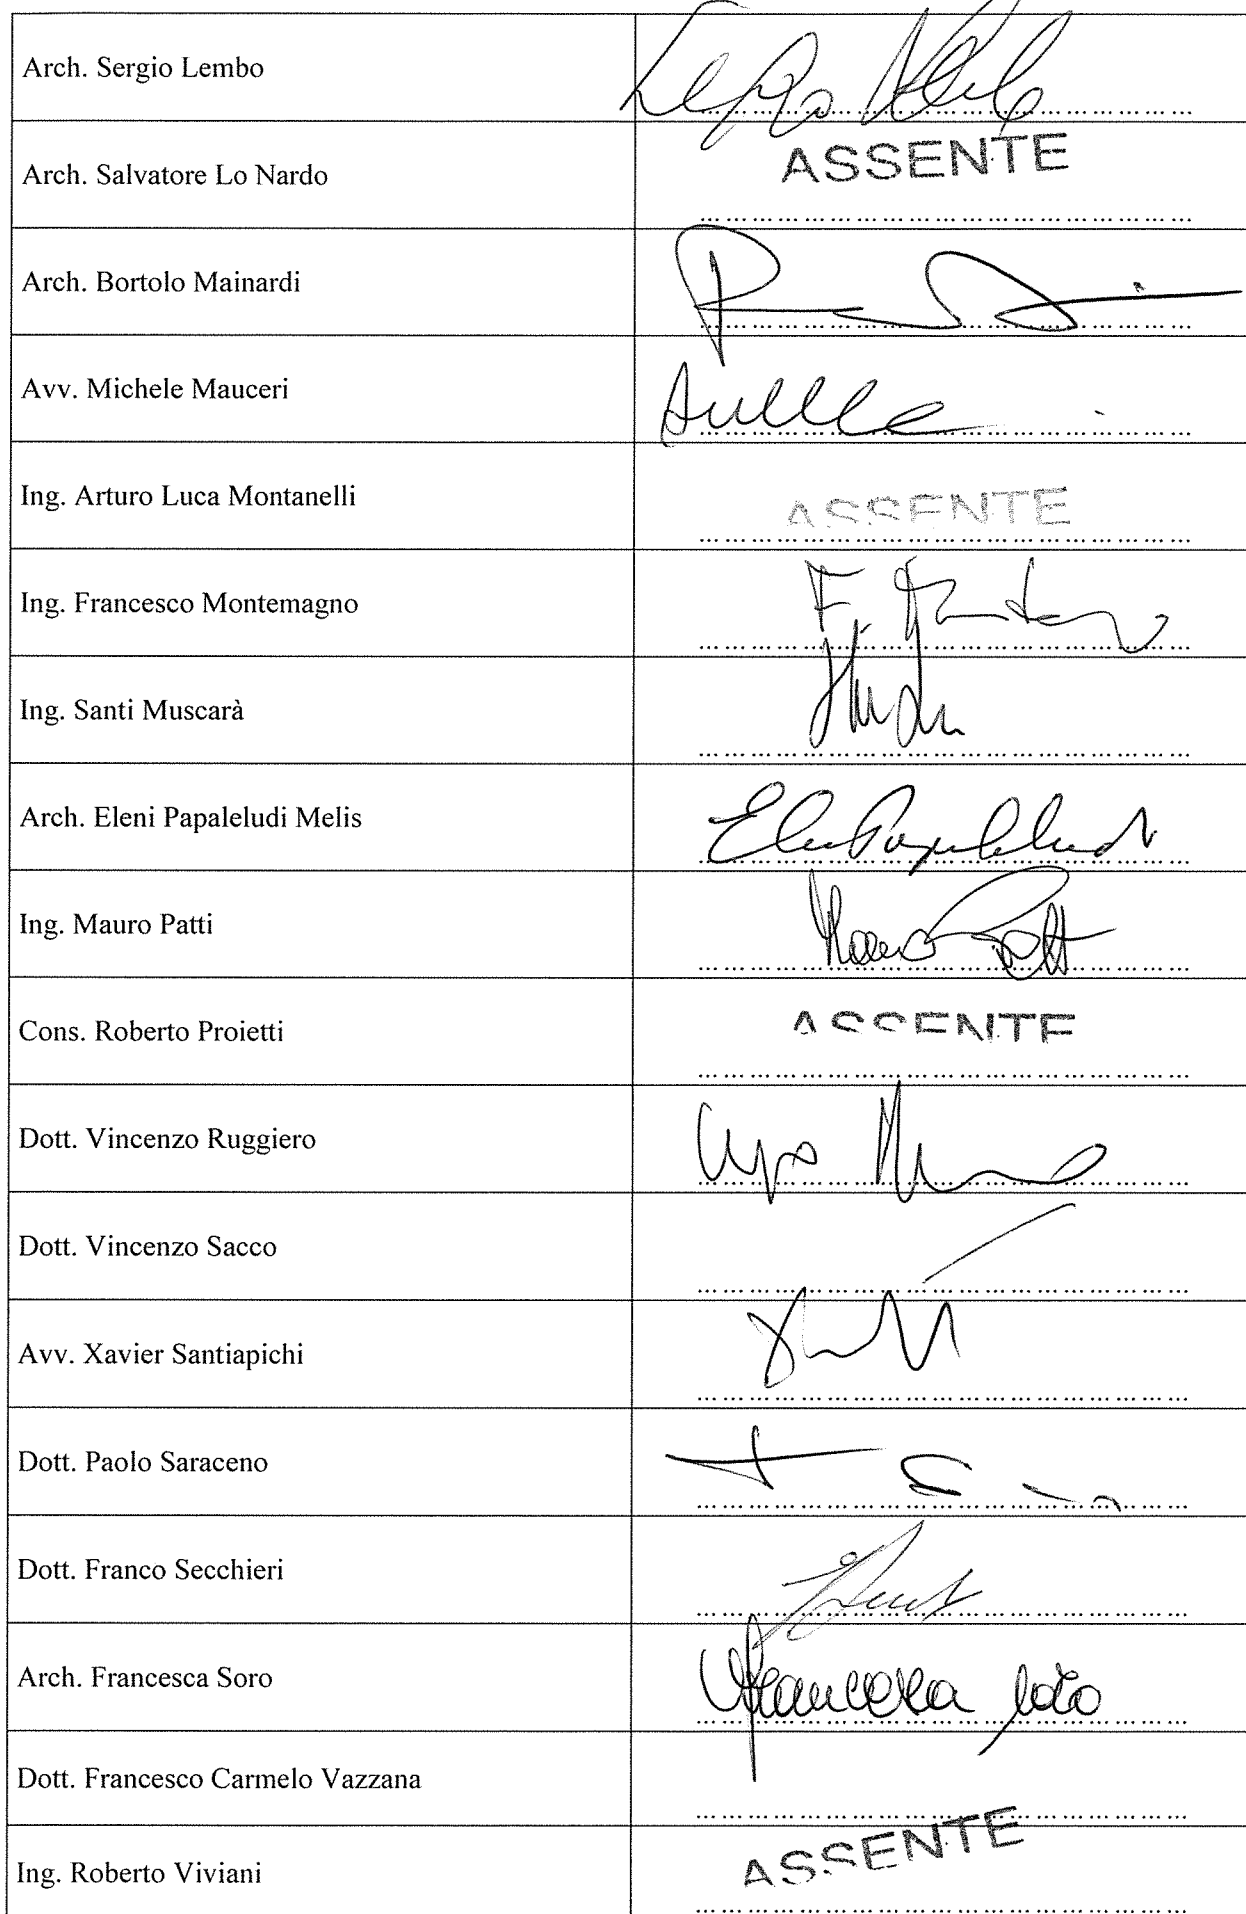 Arch. Sergio Lembo
Arch. Salvatore Lo Nardo
ASSENTE
Arch. Bortolo Mainardi
Avv. Michele Mauceri
Ing. Arturo Luca Montanelli
ASSENTE
Ing. Francesco Montemagno
Ing. Santi Muscarà
Arch. Eleni Papaleludi Melis
Ing. Mauro Patti
Cons. Roberto Proietti
ASSENTE
Dott. Vincenzo Ruggiero
Dott. Vincenzo Sacco
Avv. Xavier Santiapichi
Dott. Paolo Saraceno
Dott. Franco Secchieri
Arch. Francesca Soro
Francesca Soro
Dott. Francesco Carmelo Vazzana
Ing. Roberto Viviani
ASSENTE